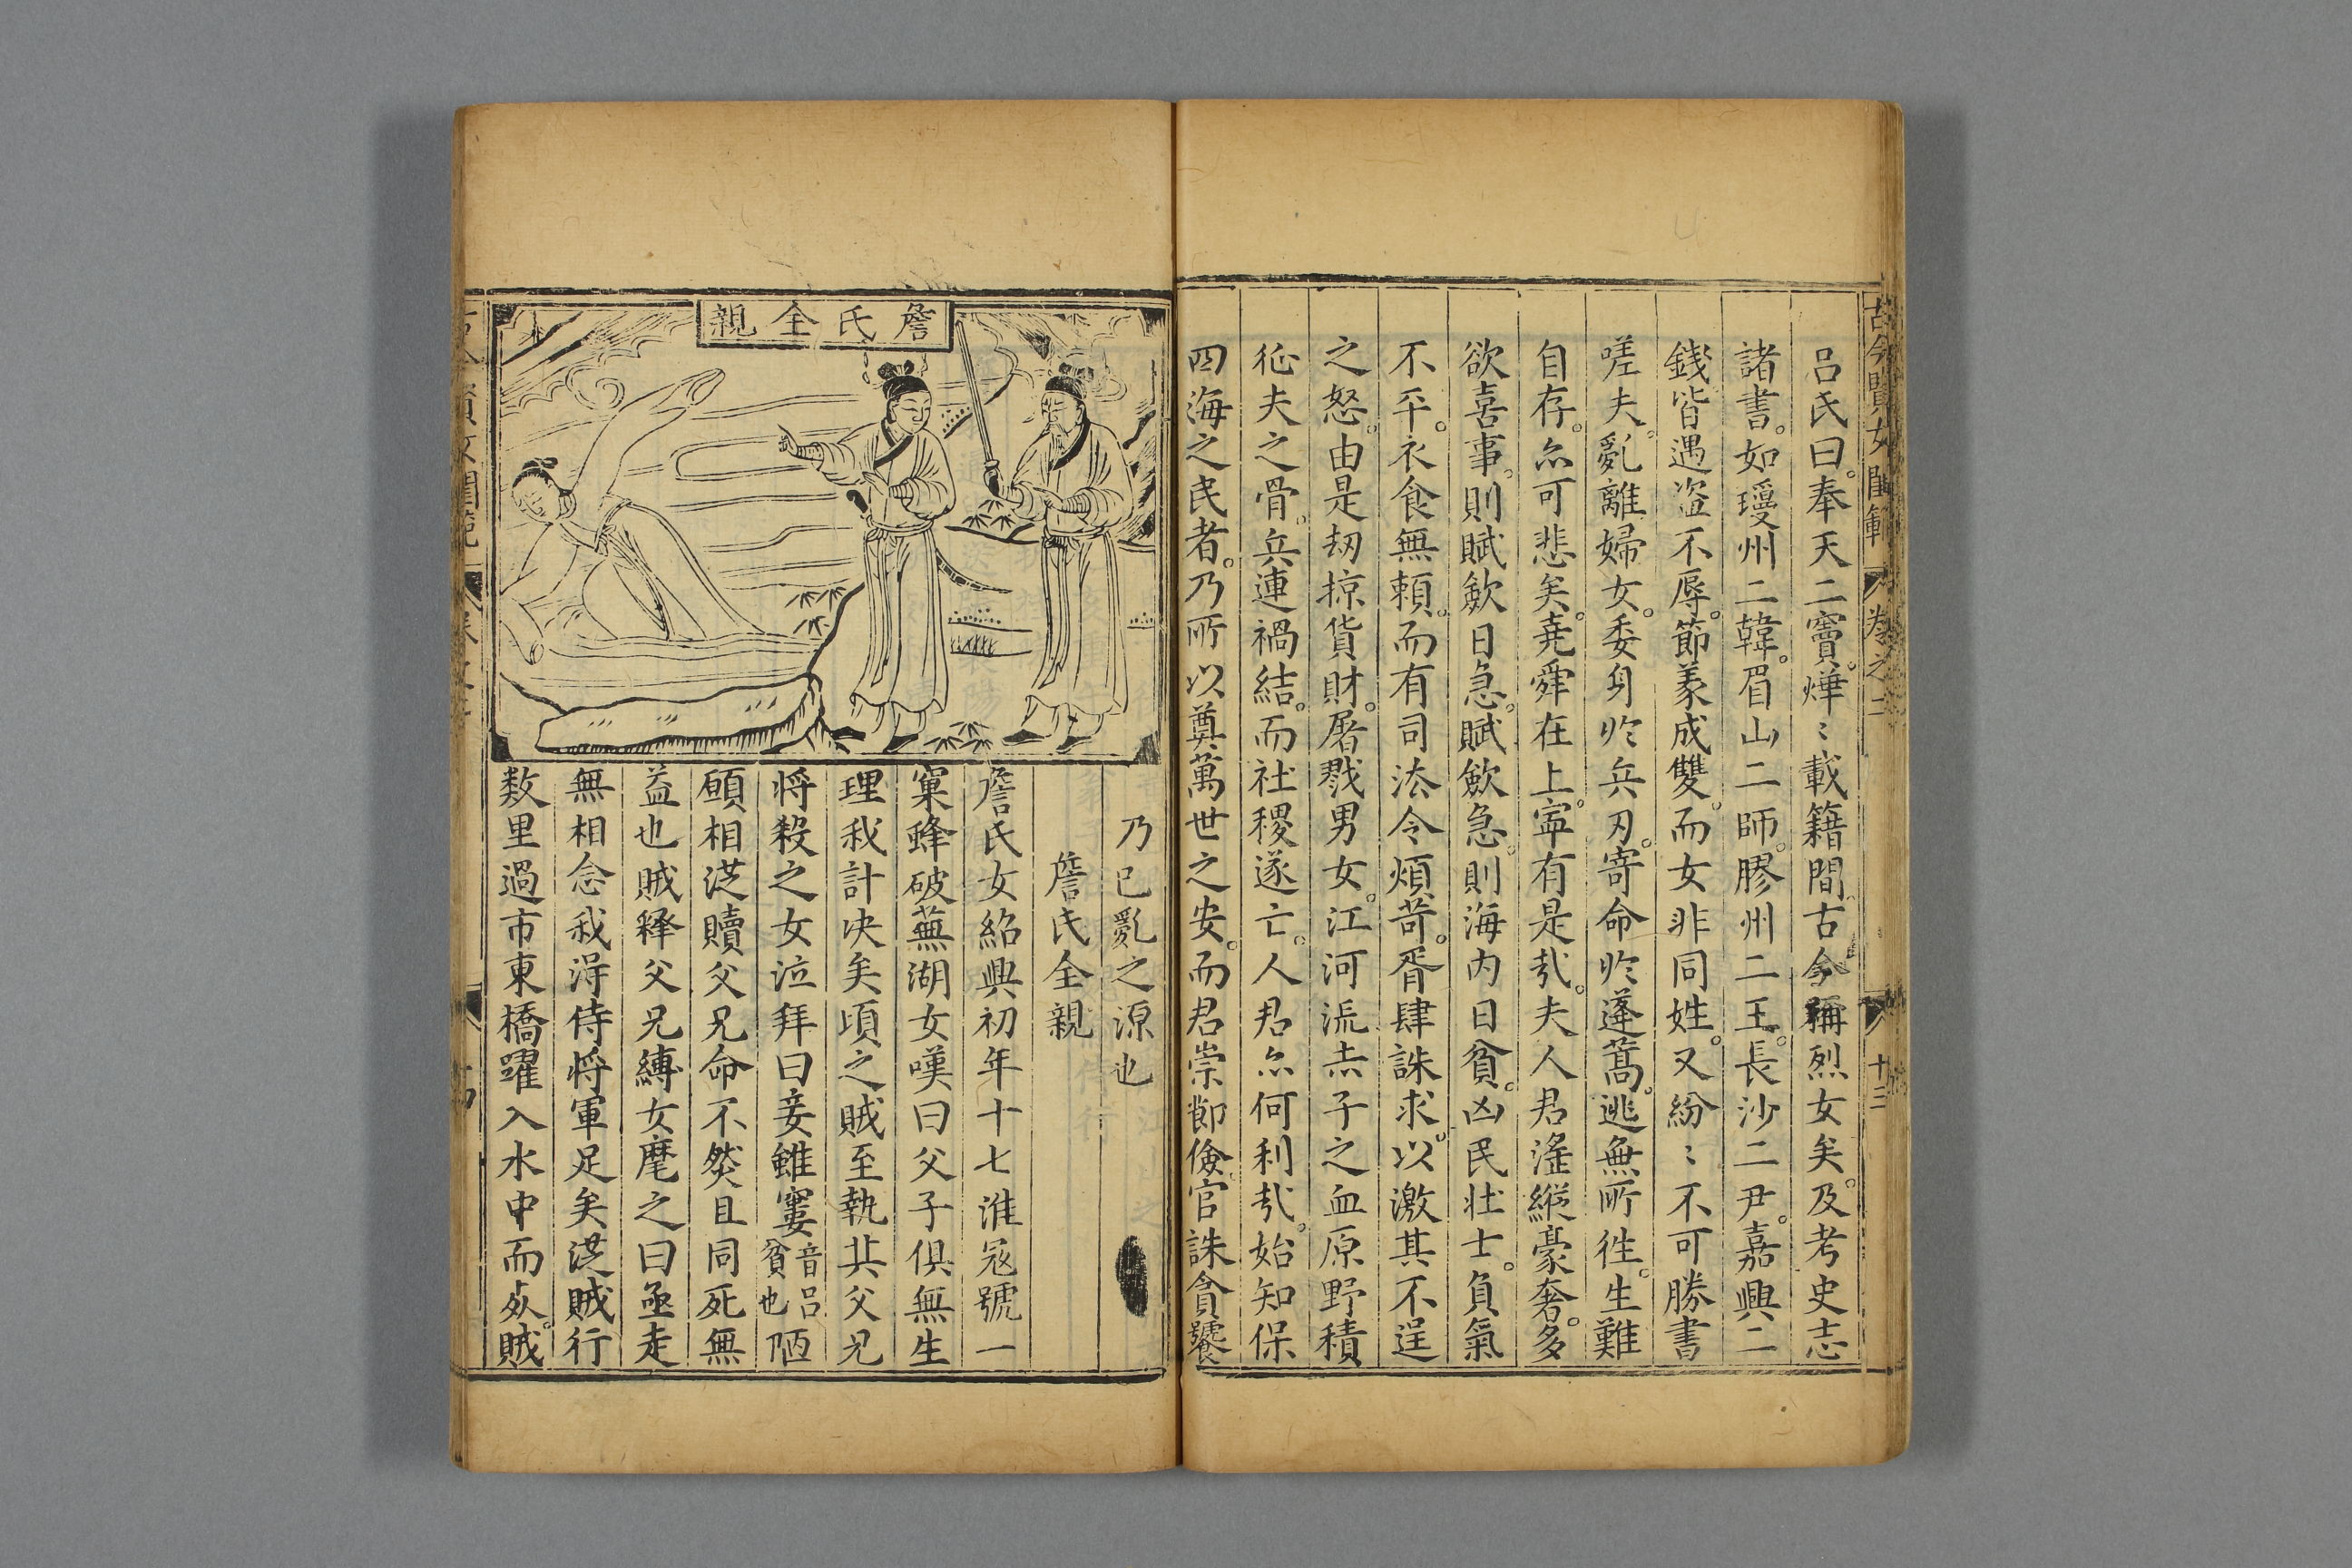 古今賢女閨範 卷之二 十三
呂氏曰。奉天二竇。燁〻載籍間。古今稱烈女矣。及考史志
諸書。如瓊州二韓。眉山二師。膠州二王。長沙二尹。嘉興二
錢皆遇盜不辱。節義成雙。而女非同姓。又紛〻不可勝書
嗟夫。亂離婦女。委身於兵刃。寄命於蓬蒿。逃無所徃。生難
自存。亦可悲矣。堯舜在上。寧有是㢤。夫人君滛縱豪奢。多
欲喜事。則賦歛日急。賦歛急。則海内日貧。凶民壯士。負氣
不平。衣食無頼。而有司法令煩苛。胥肆誅求。以激其不逞
之怒。由是刼掠貨財。屠戮男女。江河流赤子之血原野積
征夫之骨。兵連禍結。而社稷遂亡。人君亦何利㢤。始知保
四海之民者。乃所以奠萬世之安。而君崇節儉官誅貪饕
乃已亂之源也
詹氏全親
詹氏全親
詹氏女紹興初年十七淮冦號一
窠蜂破蕪湖女嘆曰父子俱無生
理我計决矣頃之賊至執其父兄
将殺之女泣拜曰妾雖窶音呂貧也陋
願相從贖父兄命不然且同死無
益也賊釋父兄縛女麾之曰亟走
無相念我得侍将軍足矣從賊行
数里過市東橋躍入水中而死。賊